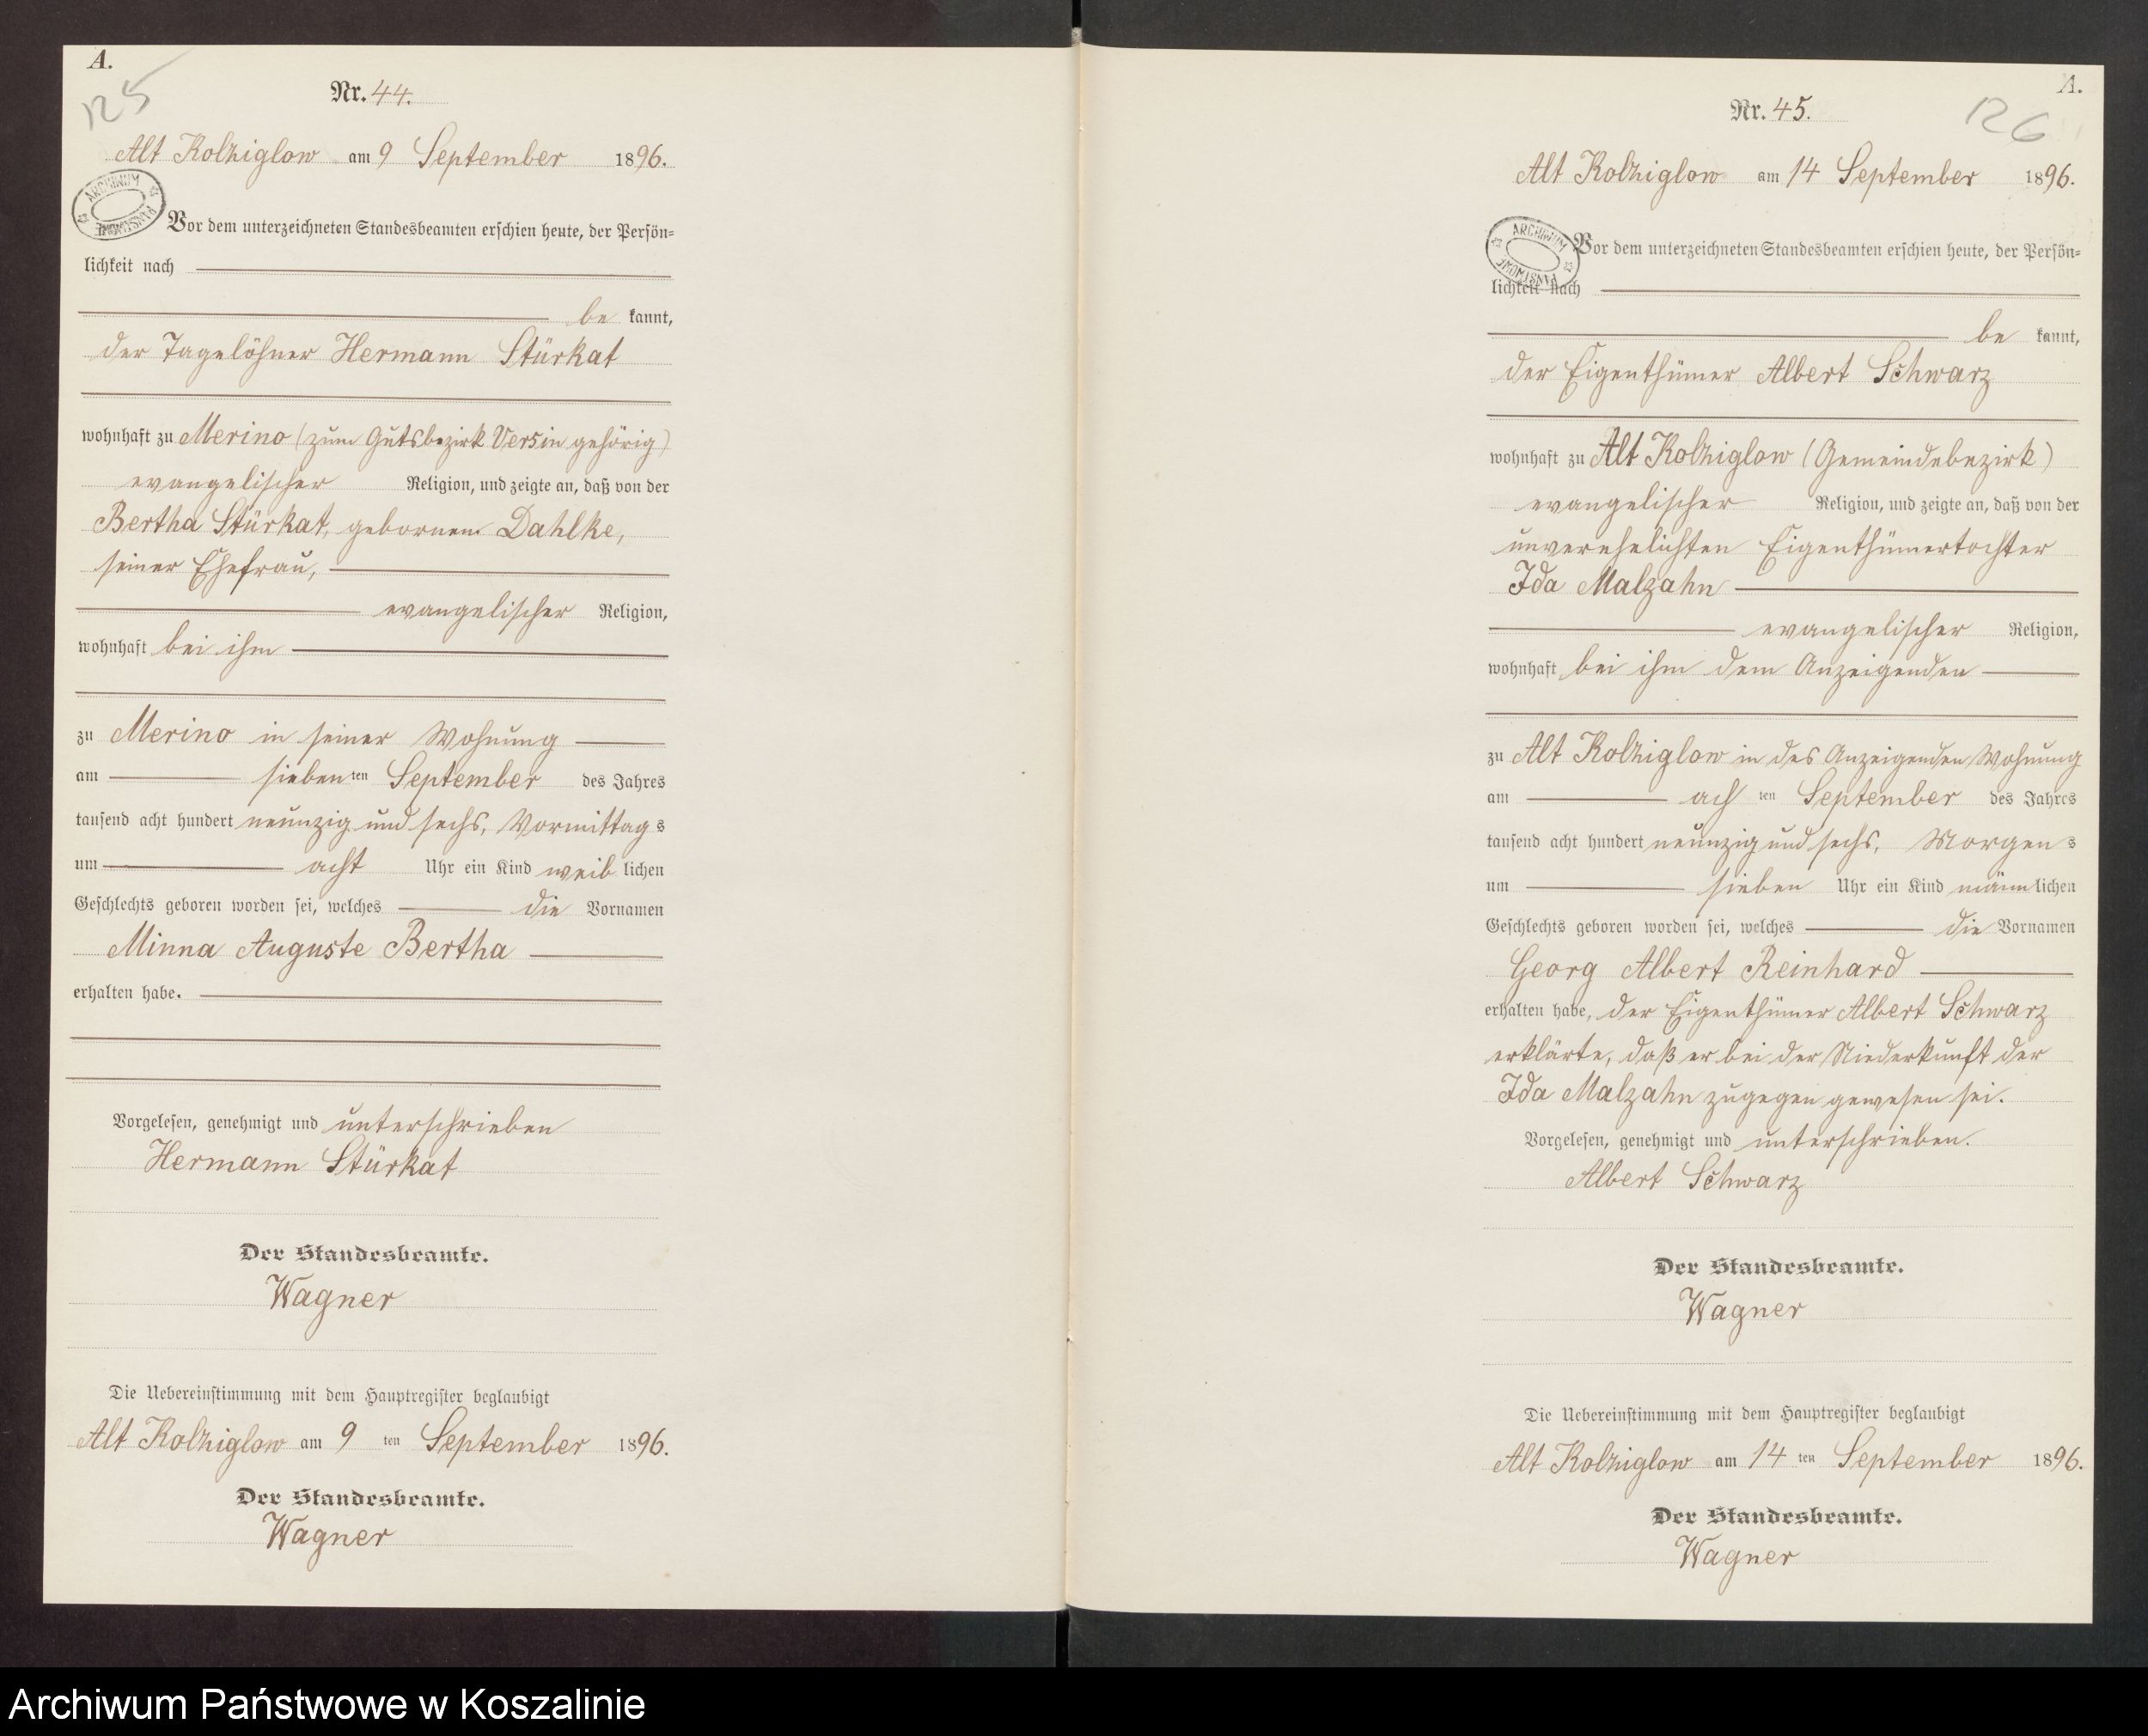 A.
125
Nr. 44.
Alt Kolziglow am 9 September 1896.
ARCHIWUM
PAŃSTWOWE
Vor dem unterzeichneten Standesbeamten erschien heute, der Persön=
lichkeit nach
be kannt,
der Tagelöhner Hermann Stürkat
wohnhaft zu Merino (zum Gutsbezirk Versin gehörig)
evangelischer Religion, und zeigte an, daß von der
Bertha Stürkat, gebornen Dahlke,
seiner Ehefrau,
evangelischer Religion,
wohnhaft bei ihm
zu Merino in seiner Wohnung
am siebenten September des Jahres
tausend acht hundert neunzig und sechs, Vormittags
um acht Uhr ein Kind weiblichen
Geschlechts geboren worden sei, welches die Vornamen
Minna Auguste Bertha
erhalten habe.
Vorgelesen, genehmigt und unterschrieben
Hermann Stürkat
Der Standesbeamte.
Wagner
Die Uebereinstimmung mit dem Hauptregister beglaubigt
Alt Kolziglow am 9 ten September 1896.
Der Standesbeamte.
Wagner
A.
126
Nr. 45.
Alt Kolziglow am 14 September 1896.
ARCHIWUM
PAŃSTWOWE
Vor dem unterzeichneten Standesbeamten erschien heute, der Persön=
lichkeit nach
be kannt,
der Eigenthümer Albert Schwarz
wohnhaft zu Alt Kolziglow (Gemeindebezirk)
evangelischer Religion, und zeigte an, daß von der
unverehelichten Eigenthümertochter
Ida Malzahn
evangelischer Religion,
wohnhaft bei ihm dem Anzeigenden
zu Alt Kolziglow in des Anzeigenden Wohnung
am achten September des Jahres
tausend acht hundert neunzig und sechs, Morgens
um sieben Uhr ein Kind männlichen
Geschlechts geboren worden sei, welches die Vornamen
Georg Albert Reinhard
erhalten habe, der Eigenthümer Albert Schwarz
erklärte, daß er bei der Niederkunft der
Ida Malzahn zugegen gewesen sei.
Vorgelesen, genehmigt und unterschrieben.
Albert Schwarz
Der Standesbeamte.
Wagner
Die Uebereinstimmung mit dem Hauptregister beglaubigt
Alt Kolziglow am 14 ten September 1896.
Der Standesbeamte.
Wagner
Archiwum Państwowe w Koszalinie